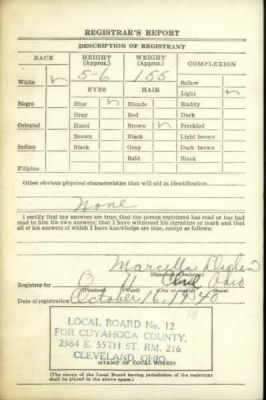 REGISTRAR'S REPORT
DESCRIPTION OF REGISTRANT
RACE HEIGHT (Approx.) WEIGHT (Approx.) COMPLEXION
5-6 155
White EYES HAIR Sallow
Light
Negro Blue Blonde Ruddy
Gray Red Dark
Oriental Hazel Brown Freckled
Brown Black Light brown
Indian Black Gray Dark brown
Bald Black
Filipino
Other obvious physical characteristics that will aid in identification
None
I certify that my answers are true; that the person registered has read or has had
read to him his own answers; that I have witnessed his signature or mark and that
all of his answers of which I have knowledge are true, except as follows:
Marcella
Registrar for Ohio
(Precinct) (Ward) (City or county) (State)
Date of registration October 16, 1940
LOCAL BOARD No. 12
FOR CUYAHOGA COUNTY,
2564 E. 55TH ST. RM. 216
CLEVELAND, OHIO
(STAMP OF LOCAL BOARD)
(The stamp of the Local Board having jurisdiction of the registrant
shall be placed in the above space.)